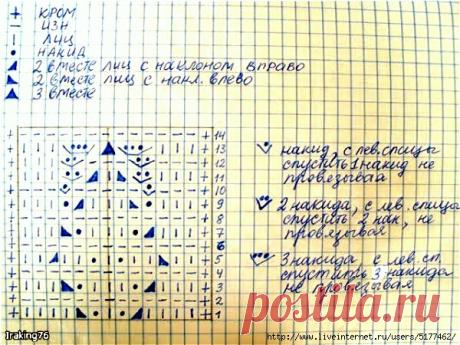 + КРОМ
— ИЗН
| ЛИЦ
• НАКИД
◢ 2 ВМЕСТЕ ЛИЦ С НАКЛОНОМ ВПРАВО
◣ 2 ВМЕСТЕ ЛИЦ С НАКЛ. ВЛЕВО
▲ 3 ВМЕСТЕ
14
13
12
11
10
9
8
7
6
5
4
3
2
1
НАКИД, С ЛЕВ. СПИЦЫ
СПУСТИТЬ 1 НАКИД НЕ
ПРОВЯЗЫВАЯ
2 НАКИДА, С ЛЕВ. СПИЦЫ
СПУСТИТЬ 2 НАК, НЕ
ПРОВЯЗЫВАЯ
3 НАКИДА С ЛЕВ. СП.
СПУСТИТЬ 3 НАКИДА
НЕ ПРОВЯЗЫВАЯ
Iraking76
postila.ru
http://www.liveinternet.ru/users/5177462/